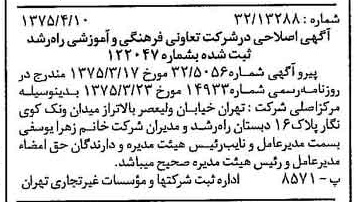 شماره : ۳۲/۱۳۲۸۸ ۱۳۷۵/۴/۱۰
آگهی اصلاحی در شرکت تعاونی فرهنگی و آموزشی راه‌رشد
ثبت شده بشماره ۱۲۲۰۴۷
پیرو آگهی شماره ۳۲/۵۰۵۶ مورخ ۱۳۷۵/۳/۱۷ مندرج در
روزنامه‌رسمی شماره ۱۴۹۳۳ مورخ ۱۳۷۵/۳/۲۳ بدینوسیله
مرکزاصلی شرکت : تهران خیابان ولیعصر بالاتراز میدان ونک کوی
نگار پلاک ۱۶ دبستان راه‌رشد و مدیران شرکت خانم زهرا یوسفی
بسمت مدیرعامل و نایب‌رئیس هیئت مدیره و دارندگان حق امضاء
مدیرعامل و رئیس هیئت مدیره صحیح میباشد.
پ - ۸۵۷۱ اداره ثبت شرکتها و مؤسسات غیرتجاری تهران